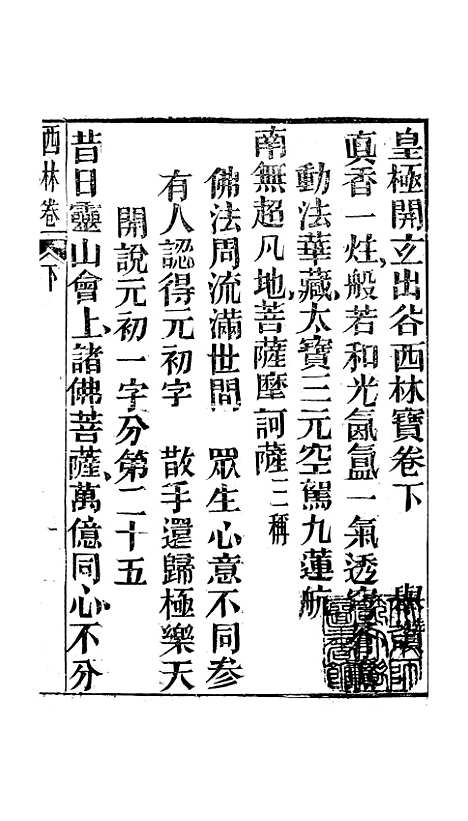 皇極開玄出谷西林寶卷下 舉讚
真香一炷般若和光氤氳一氣透
動法華藏太寶三元空駕九蓮航
南無超凡地菩薩摩訶薩三稱
佛法周流滿世間 眾生心意不同參
有人認得元初字 散手還歸極樂天
開說元初一字分第二十五
昔日靈山會上諸佛菩薩萬億同心不分
西林卷 下